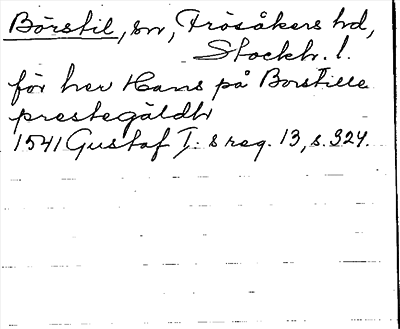 Börstil, sn, Frösåkers hd,
Stockh. l.
för her Hans på Borstille
prestegäldh
1541 Gustaf I:s reg. 13, s. 324.